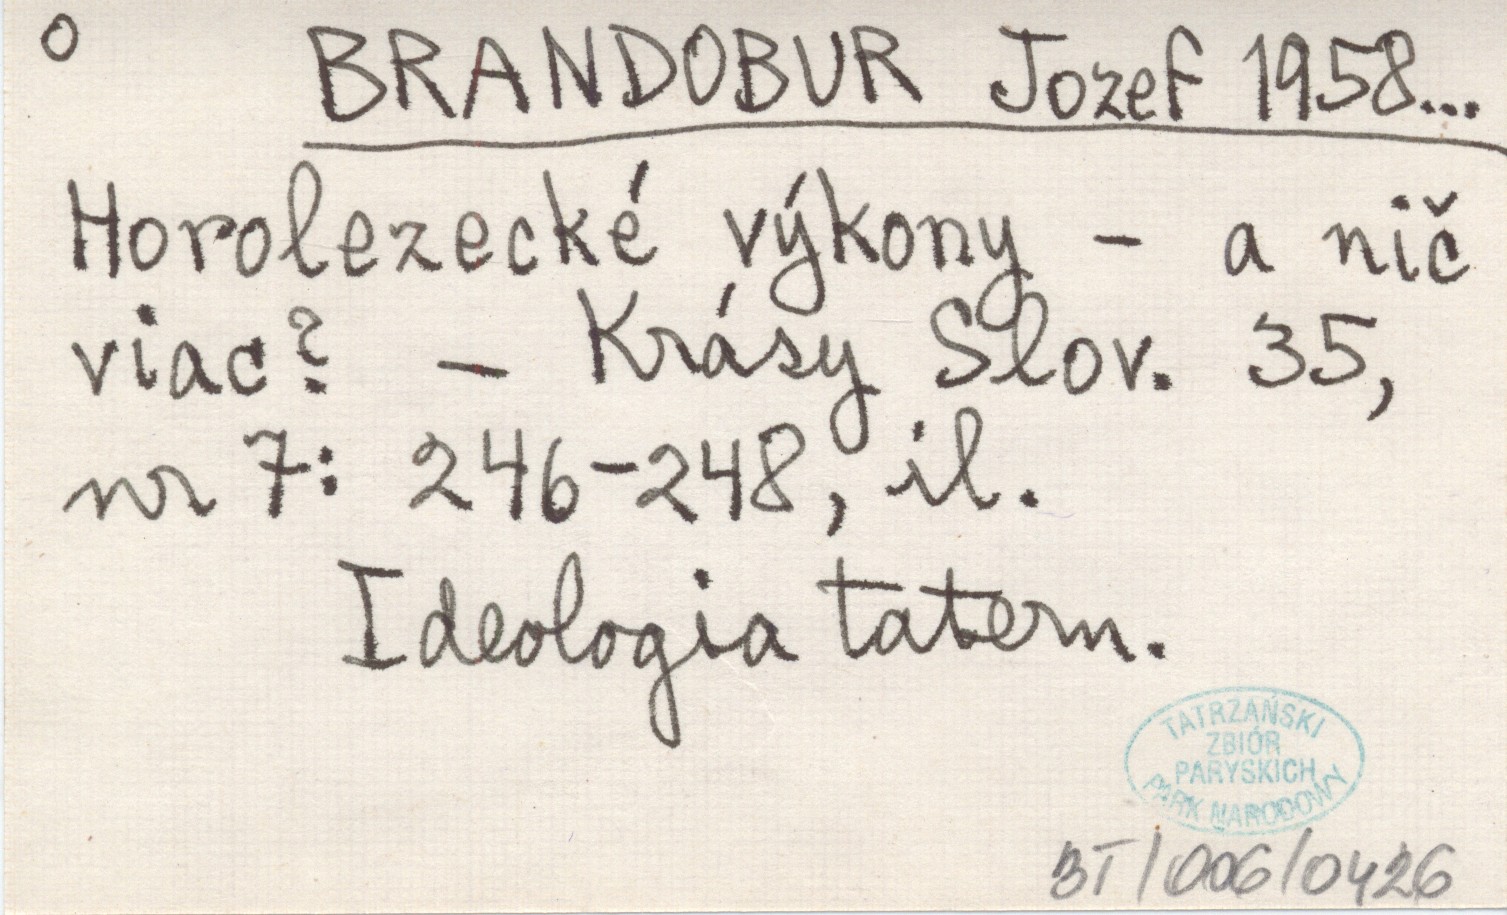 o BRANDOBUR Jozef 1958...
Horolezecké výkony - a nič
viac? - Krásy Slov. 35,
nr 7: 246-248, il.
Ideologia tatern.
TATRZAŃSKI
ZBIÓR
PARYSKICH
PARK NARODOWY
BT/006/0426